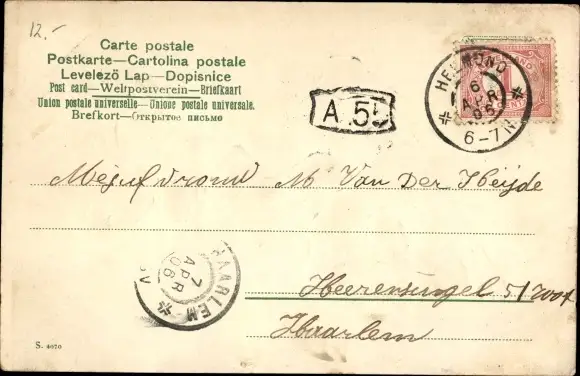 12.-
Carte postale
Postkarte—Cartolina postale
Levelező Lap—Dopisnice
Post card—Weltpostverein—Briefkaart
Union postale universelle—Unione postale universale.
Brefkort—Открытое письмо
A 55
HELMOND
6
APR
06
6-7N
M Van Der Heijde
HAARLEM
7
APR
06
Heerensingel 51
Haarlem
S. 4070